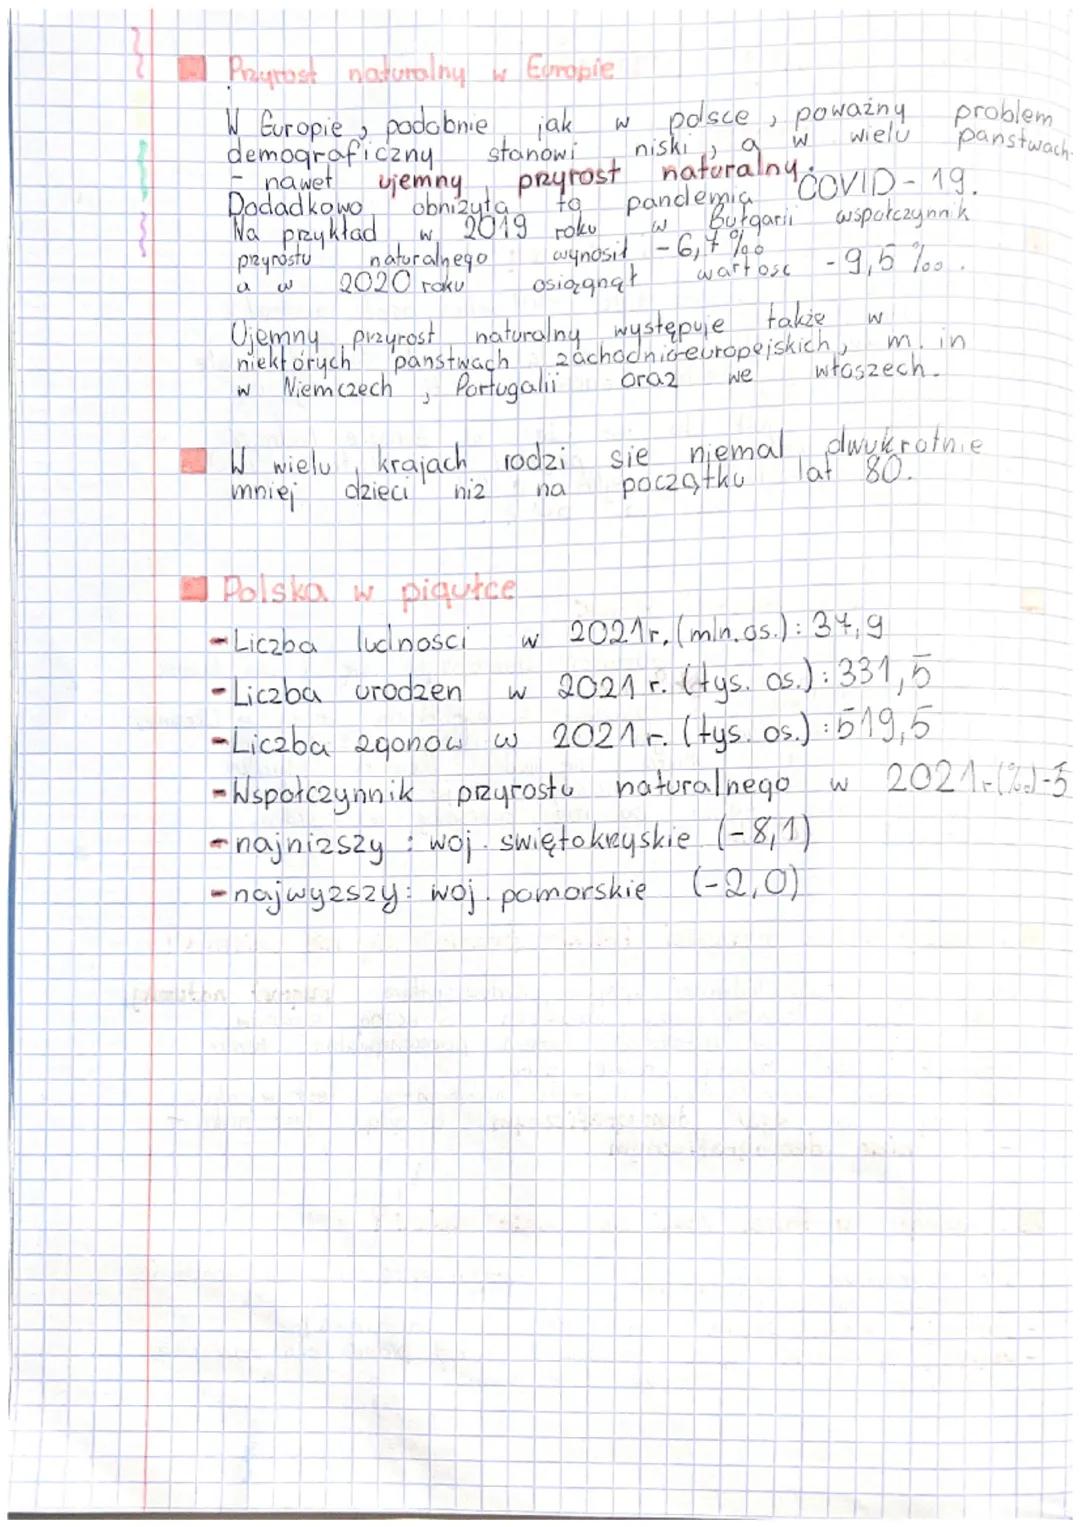 Przyrost naturalny w Europie
W Europie, podobnie jak w polsce, poważny problem
demograficzny stanowi niski, a w wielu panstwach
- nawet ujemny przyrost naturalny.
Dodadkowo obniżyła to pandemia COVID-19.
Na przykład w 2019 roku w Bułgarii współczynnik
przyrostu naturalnego wynosił -6,7‰
a w 2020 roku osiągnął wartosc -9,5‰.
Ujemny przyrost naturalny występuje także w
niektórych panstwach zachodnio-europejskich, m. in
w Niemczech, Portugalii oraz we włoszech.
W wielu krajach rodzi sie niemal dwukrotnie
mniej dzieci niz na początku lat 80.
Polska w pigułce
- Liczba ludnosci w 2021r. (mln. os.): 37,9
- Liczba urodzen w 2021 r. (tys. os.): 331,5
- Liczba zgonow w 2021 r. (tys. os.): 519,5
- Wspołczynnik przyrostu naturalnego w 2021r (‰) -5
- najnizszy: woj. swiętokrzyskie (-8,1)
- najwyzszy: woj. pomorskie (-2,0)